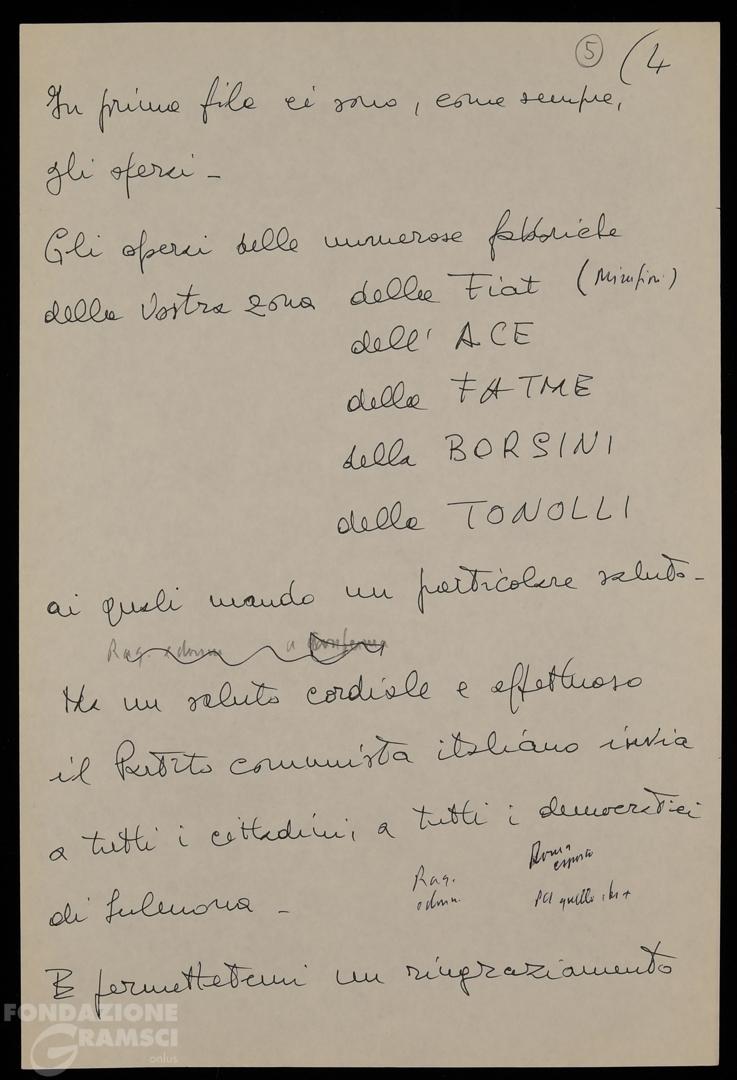 5 (4
In prima fila ci sono, come sempre,
gli operai -
Gli operai delle numerose fabbriche
della Vostra zona della Fiat (Mirafiori)
dell' ACE
della FATME
della BORSINI
della TONOLLI
ai quali mando un particolare saluto -
Rag. e donne a
Ma un saluto cordiale e affettuoso
il Partito comunista italiano invia
a tutti i cittadini, a tutti i democratici
Roma
esposto
di Sulmona - Rag.
e donn. PCI quello che +
E permettetemi un ringraziamento
FONDAZIONE
GRAMSCI
onlus